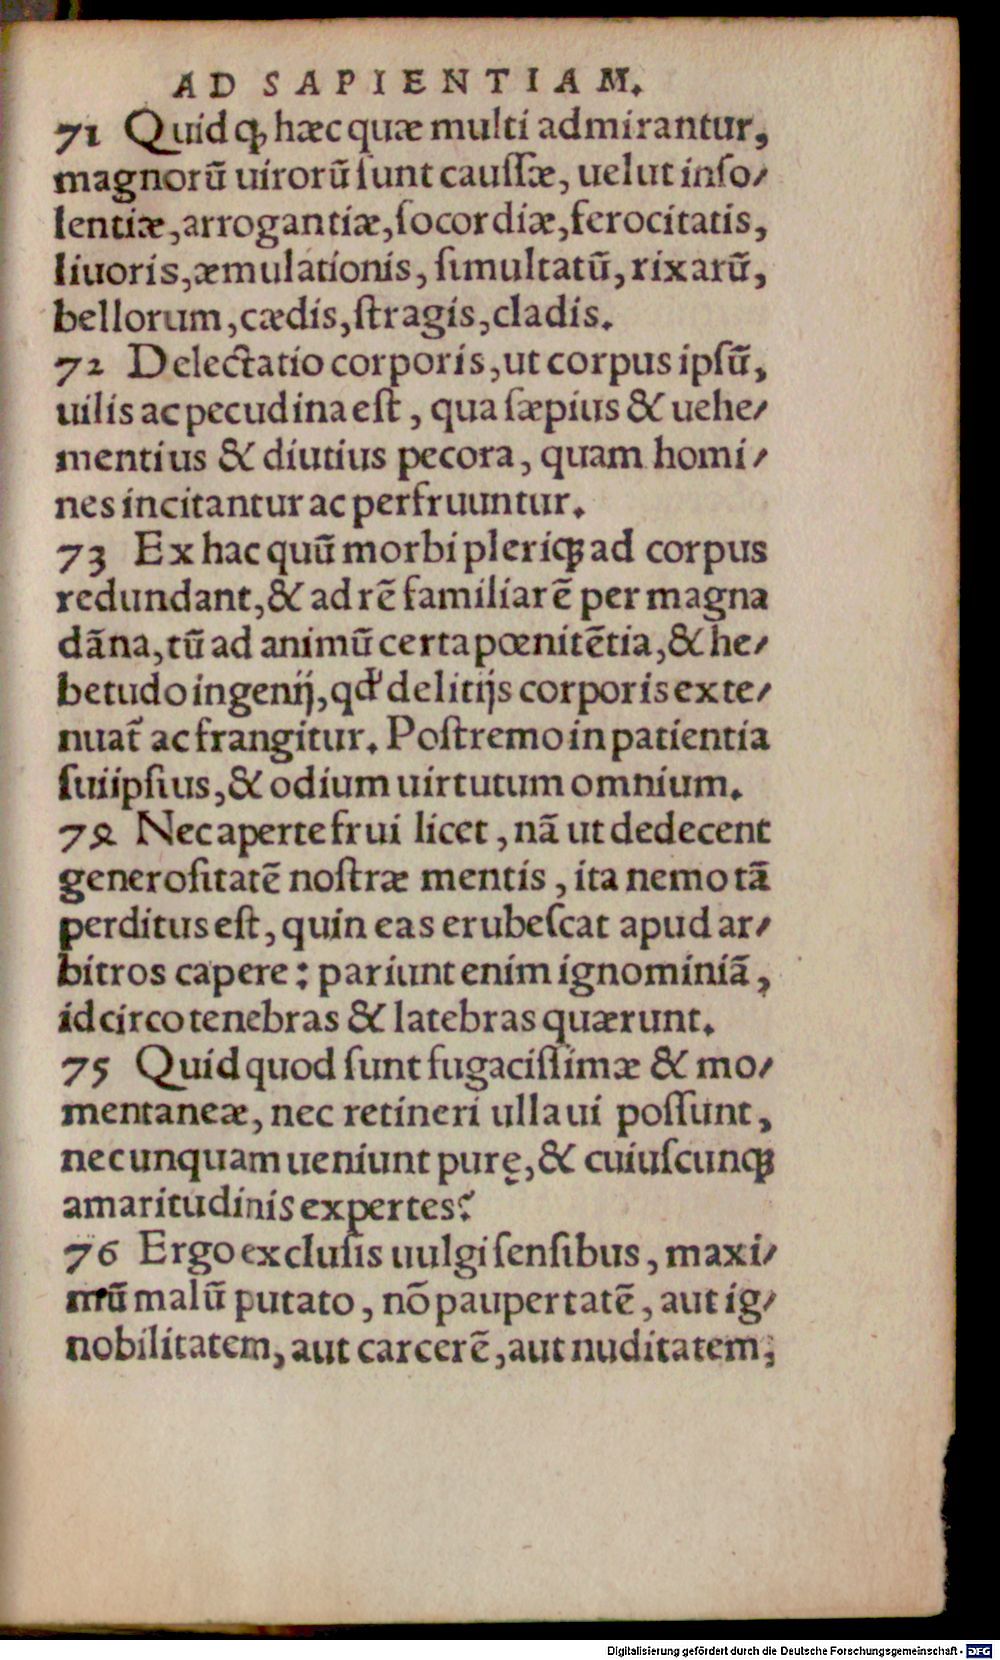 AD SAPIENTIAM.
71 Quid ꝙ hæc quæ multi admirantur,
magnorũ uirorũ ſunt cauſſæ, uelut inſo⸗
lentiæ, arrogantiæ, ſocordiæ, ferocitatis,
liuoris, æmulationis, ſimultatũ, rixarũ,
bellorum, cædis, ſtragis, cladis.
72 Delectatio corporis, ut corpus ipſũ,
uilis ac pecudina eſt, qua ſæpius & uehe⸗
mentius & diutius pecora, quam homi⸗
nes incitantur ac perfruuntur.
73 Ex hac quũ morbi pleriqꝫ ad corpus
redundant, & ad rẽ familiarẽ per magna
dãna, tũ ad animũ certa pœnitẽtia, & he⸗
betudo ingenij, qđ delitijs corporis exte⸗
nuat̃ ac frangitur. Poſtremo inpatientia
ſuiipſius, & odium uirtutum omnium.
74 Nec aperte frui licet, nã ut dedecent
generoſitatẽ noſtræ mentis, ita nemo tã
perditus eſt, quin eas erubeſcat apud ar⸗
bitros capere: pariunt enim ignominiã,
idcirco tenebras & latebras quærunt.
75 Quid quod ſunt fugaciſſimæ & mo⸗
mentaneæ, nec retineri ulla ui poſſunt,
nec unquam ueniunt purę, & cuiuſcunqꝫ
amaritudinis expertes?
76 Ergo excluſis uulgi ſenſibus, maxi⸗
mũ malũ putato, nõ paupertatẽ, aut ig⸗
nobilitatem, aut carcerẽ, aut nuditatem,
Digitalisierung gefördert durch die Deutsche Forschungsgemeinschaft - DFG